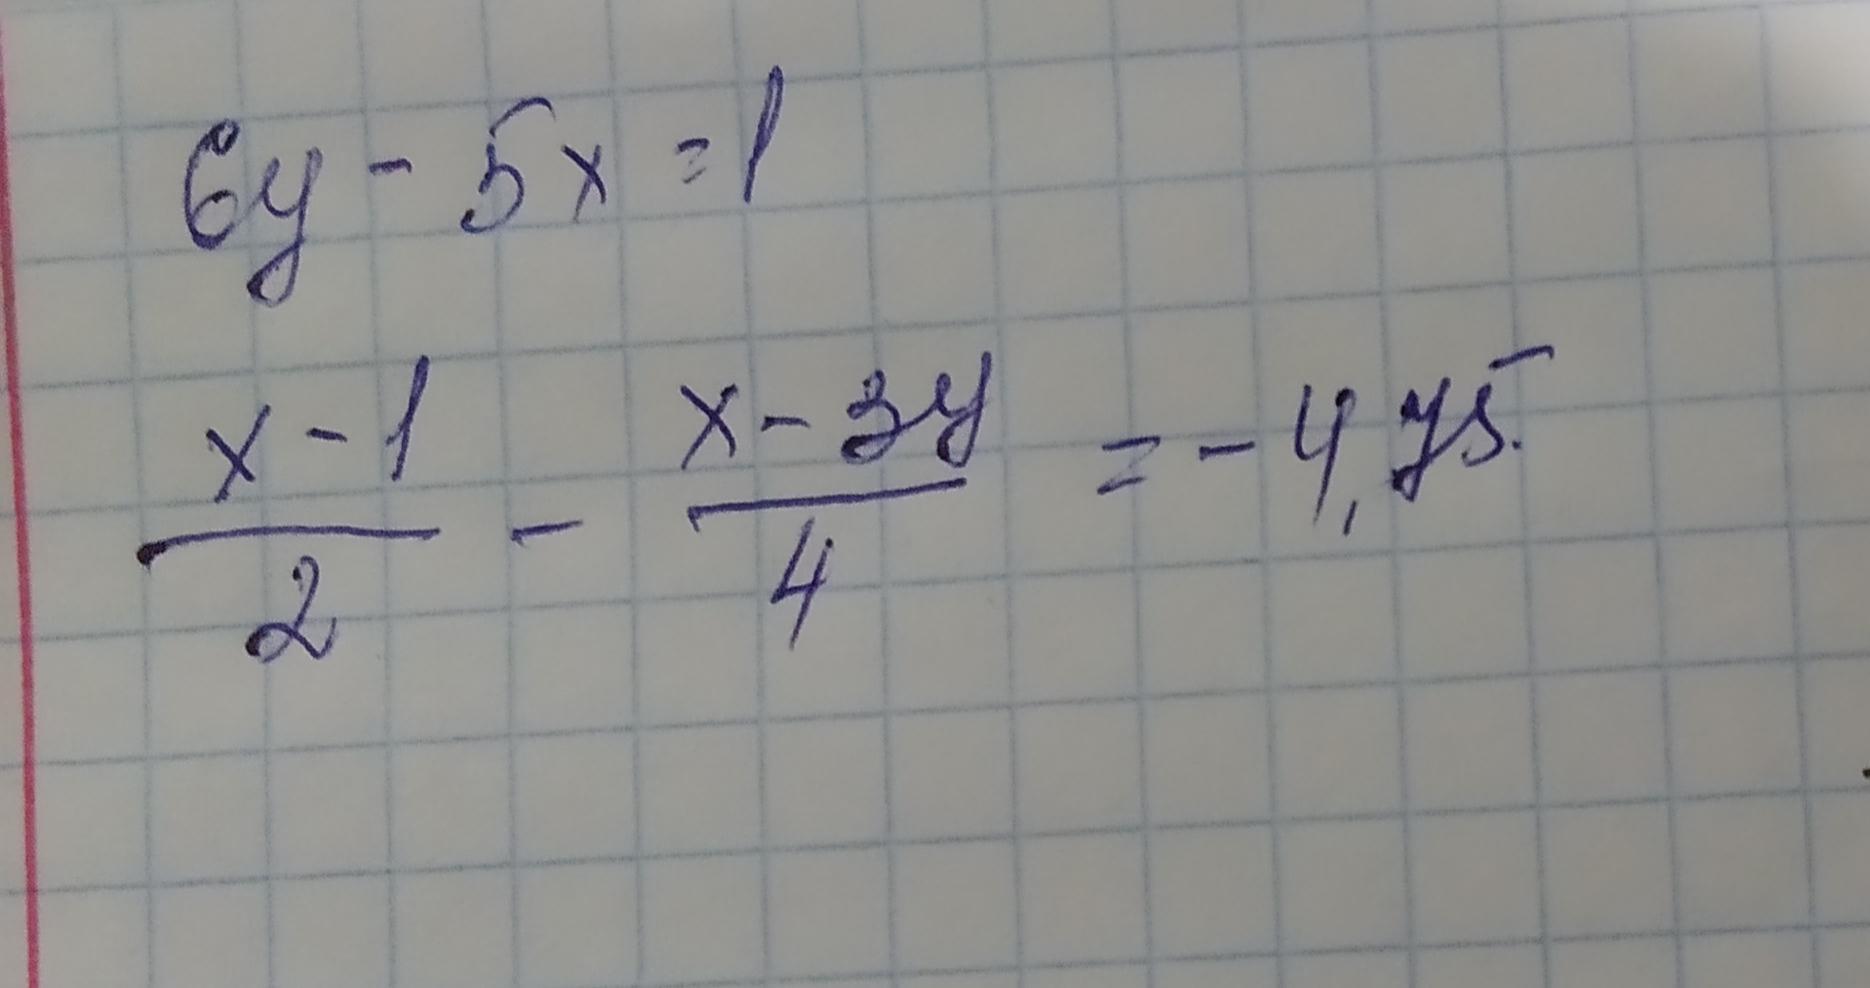 6y - 5x = 1
x - 1 / 2 - x - 3y / 4 = - 4,75.